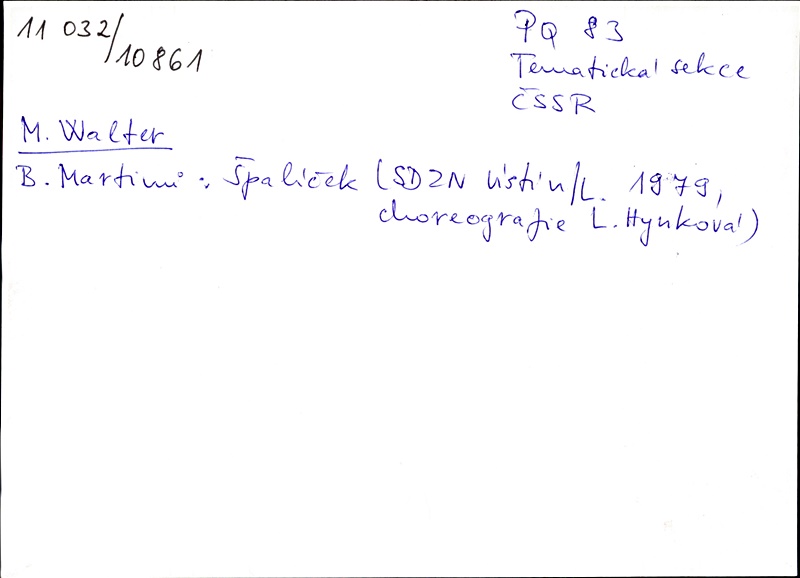 11 032/10861
PQ 83
Tematická sekce
ČSSR
M. Walter
B. Martinů: Špalíček (SDZN Ústí n/L. 1979,
choreografie L. Hynková)